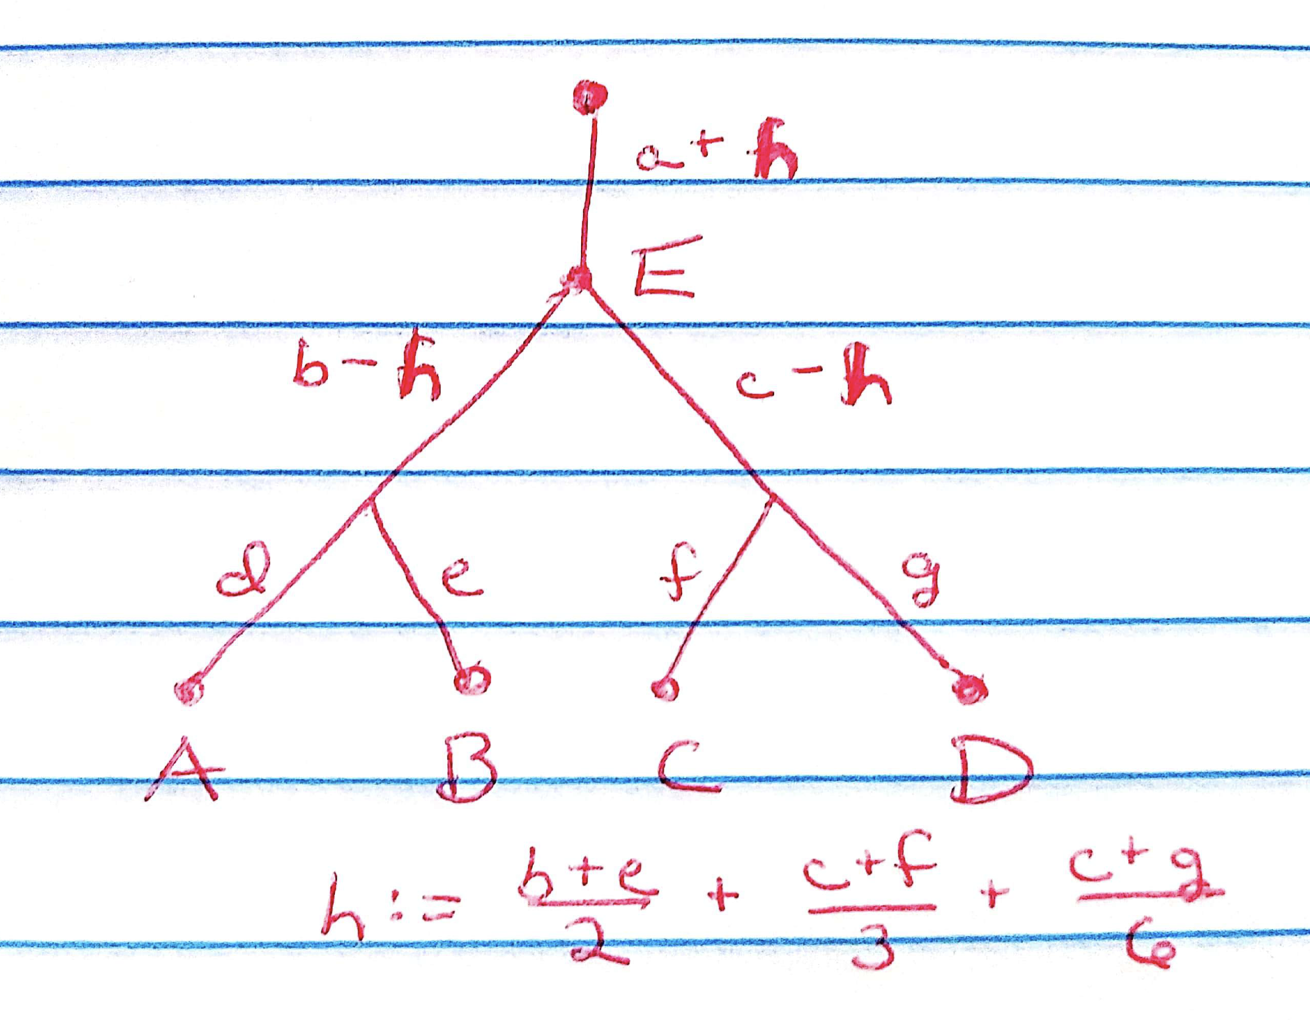 a + h
E
b - h c - h
d e f g
A B C D
h := (b+e)/2 + (c+f)/3 + (c+g)/6